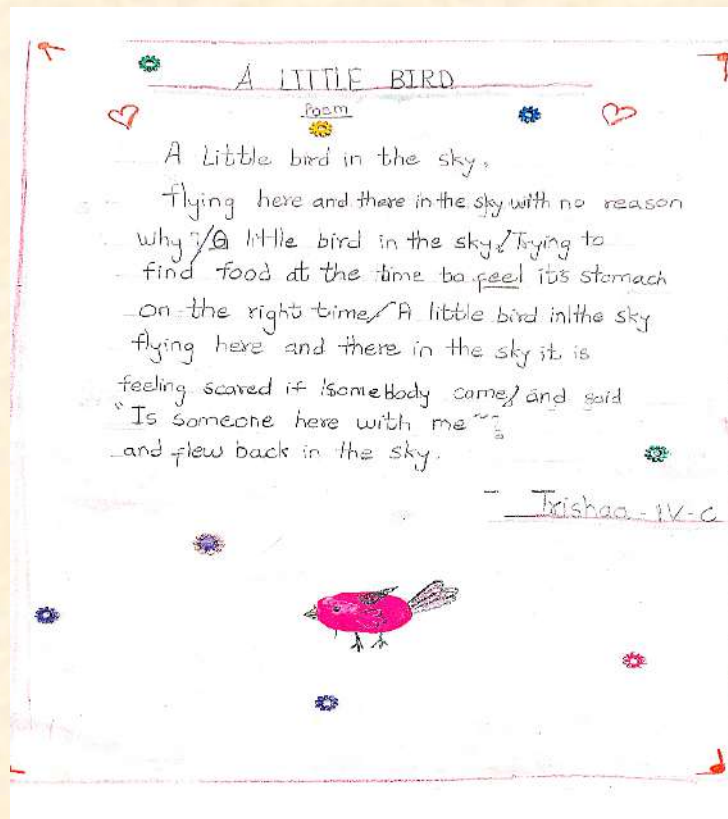 A LITTLE BIRD
Poem
A Little bird in the sky,
flying here and there in the sky with no reason
why "/A little bird in the sky,/Trying to
find food at the time to feel it's stomach
on the right time/ A little bird in the sky
flying here and there in the sky it is
feeling scared if somebody came/ and said
"Is someone here with me"
and flew back in the sky.
- Trishaa - IV - C